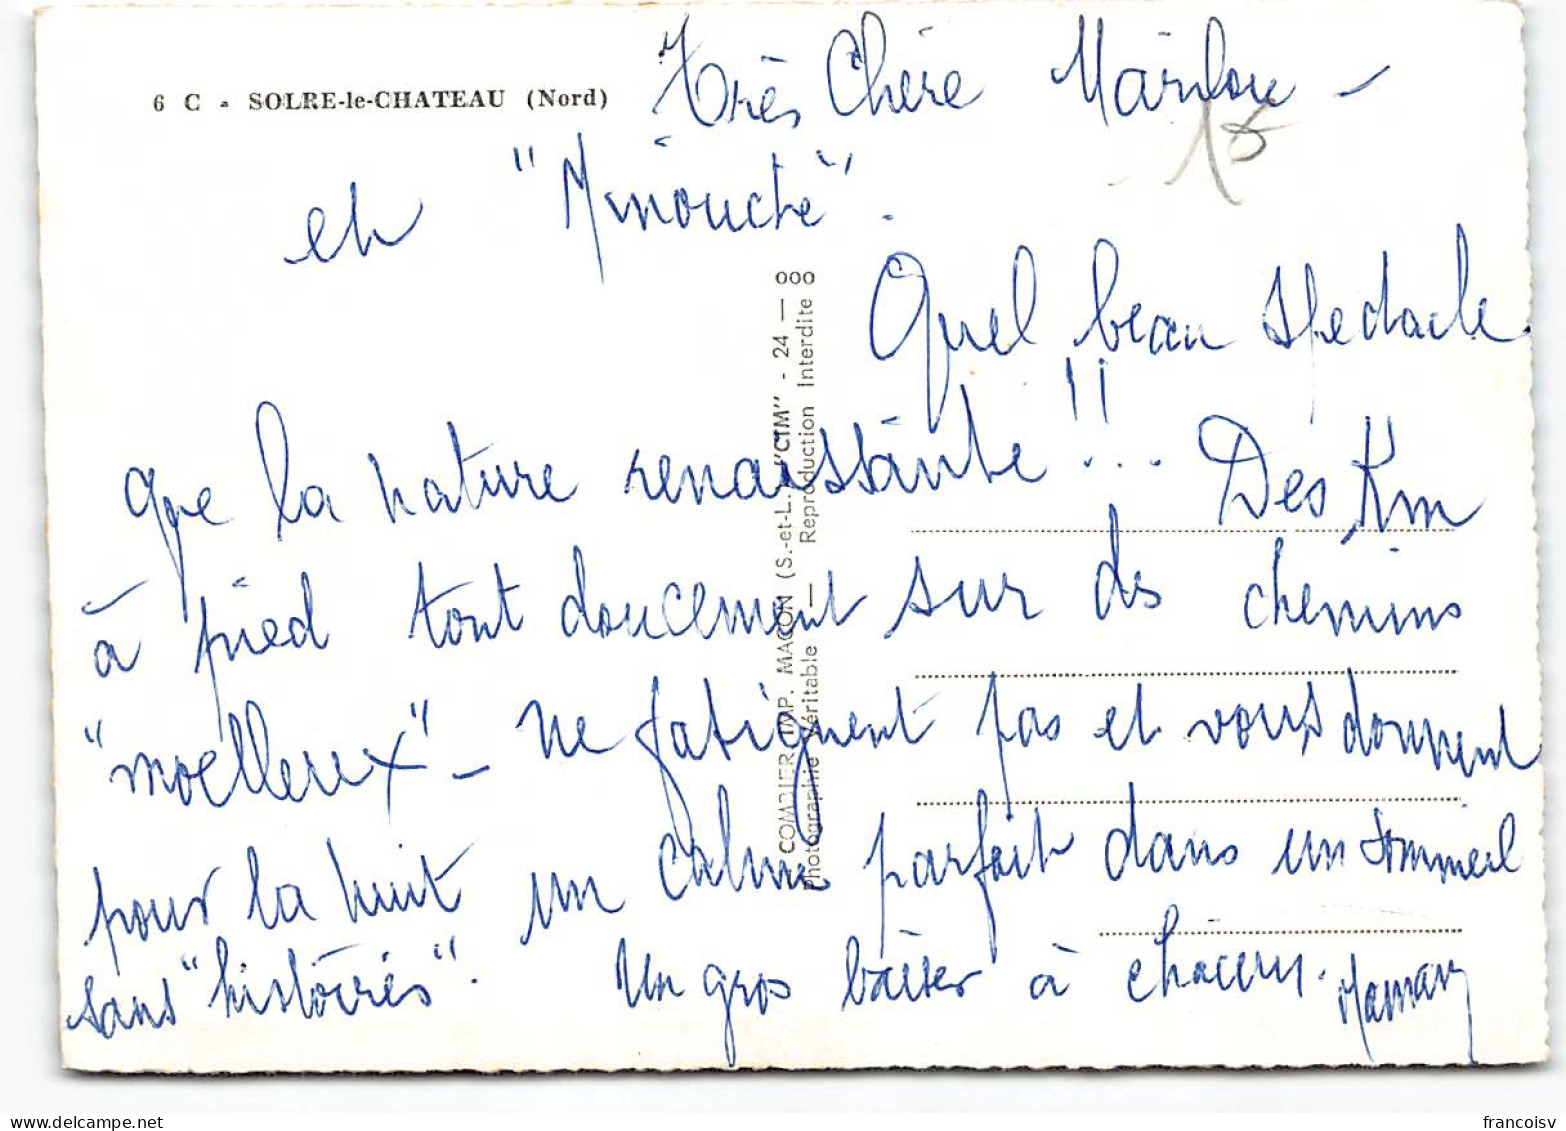 6 C - SOLRE-le-CHATEAU (Nord)
Très Chère Marilou -
15
et "Minouche".
Quel beau spectacle
que la nature renaissante !! ... Des Km
à pied tout doucement sur des chemins
"moëlleux" - ne fatiguent pas et vous donnent
pour la nuit un calme parfait dans un sommeil
sans "histoires". Un gros baiser à chacun. Maman
COMBIER IMP. MACON (S.-et-L.) "CIM" - 24 — ooo
Photographie Véritable — Reproduction Interdite oo
francoisv